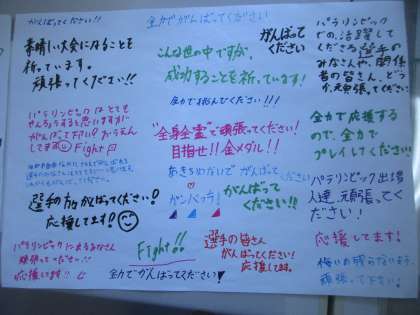 がんばってください!!
素晴しい大会になることを
祈っています。
頑張ってください!!
全力でがんばってください
こんな世の中ですが、
成功することを祈っています!
全力で挑んでください!!!
がんばって
ください
パラリンピック
での活躍して
くださる選手の
みなさんや、関係
者の皆さん、どう
か、元頑張ってください
パラリンピックはとても
がんばって下さい!おうえん
してます
Fight
"全身全霊"で頑張ってください!
目指せ!!金メダル!!
全力で応援する
ので、全力で
プレイしてください!
選手の方がんばってください!
応援してます!
あきらめないでがんばってください
ガンバッテ!
がんばって
ください!!
パラリンピック出場
人達、元頑張ってく
ださい!
パラリンピックに出るみなさん
頑張って
ください!!
応援してます!!
Fight!!
選手の皆さん
がんばってください!
応援してます。
応援してます!
悔いの残らないよう、
頑張って下さい!
全力でがんばってください!